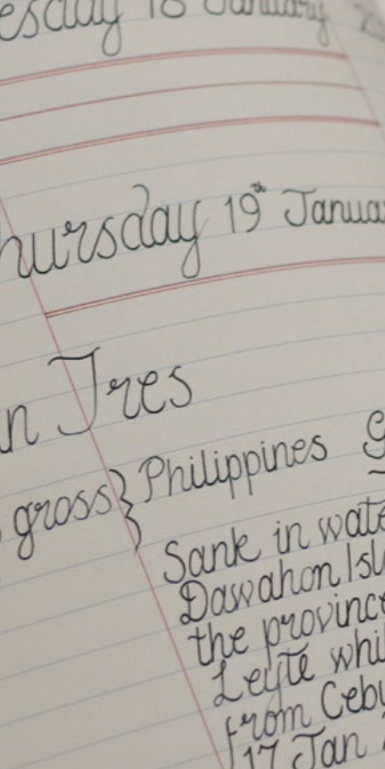 18 January
19th Janua
Tres
gross} Philippines
Sank in wat
Dawahon Isl
the provinc
Leyte whi
from Ceb
17 Jan